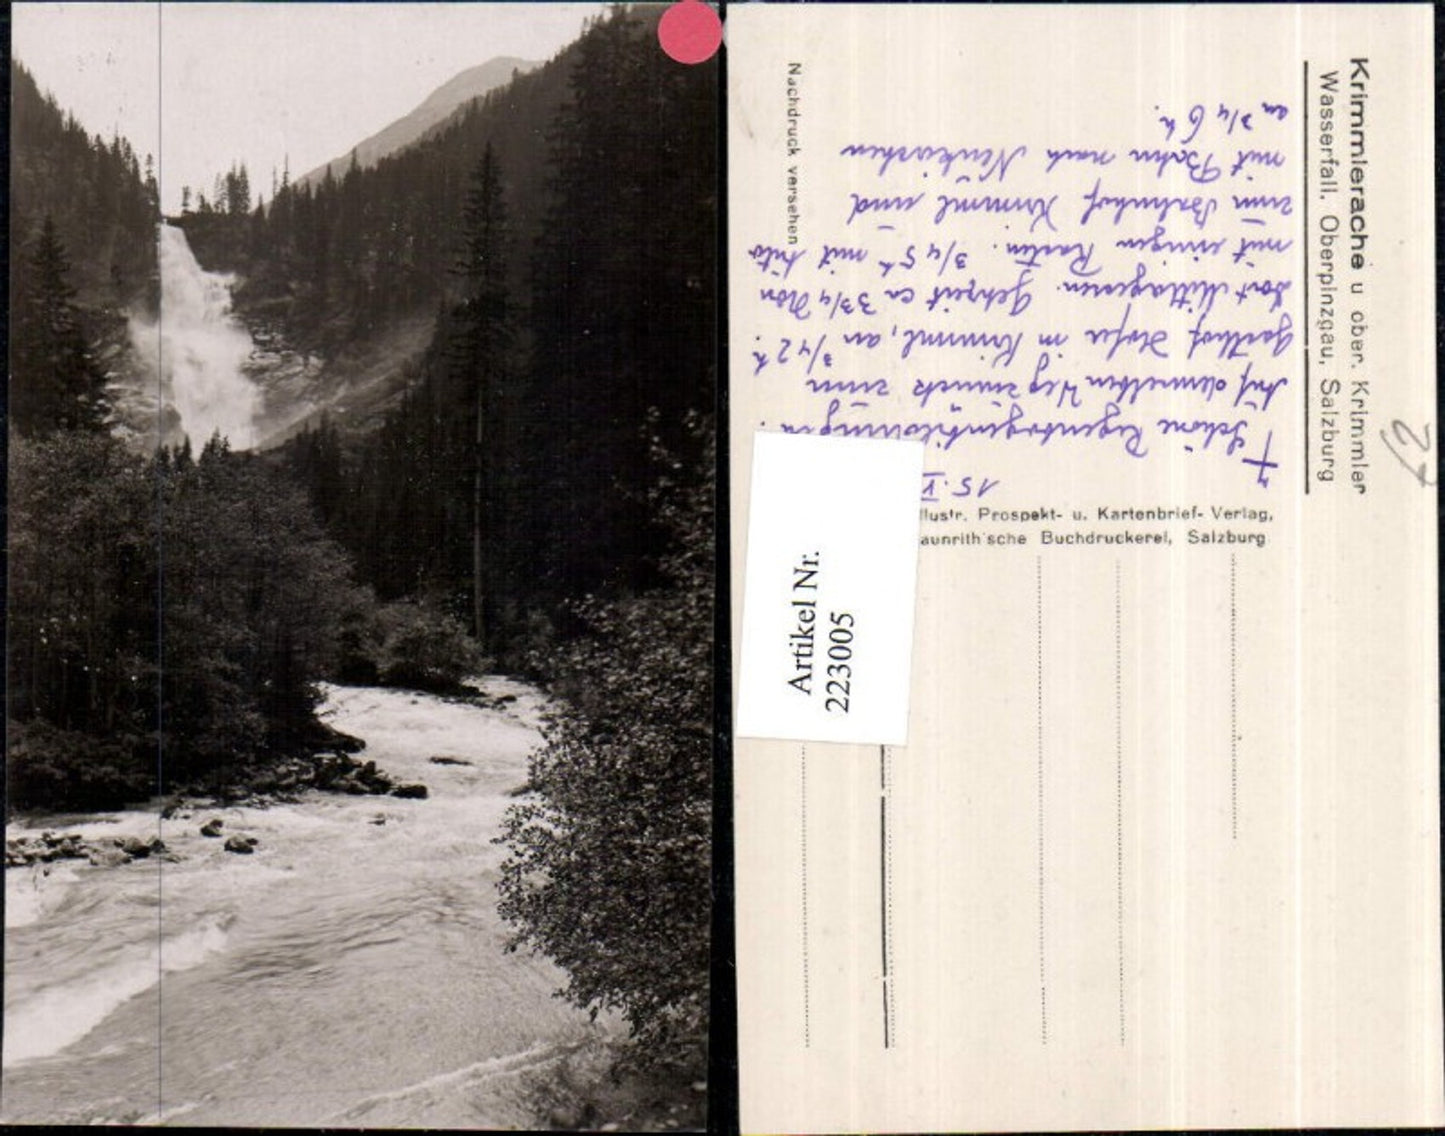 Krimmlerache u ober. Krimmler
Wasserfall. Oberpinzgau, Salzburg
Nachdruck versehen
llustr. Prospekt- u. Kartenbrief-Verlag,
aunrith'sche Buchdruckerei, Salzburg
Artikel Nr.
223005
15. V
Schöne Regenbogenbildungen.
Auf demselben Weg zurück zum
Gasthof Hofer in Krimml, an 3/4 2 h.
dort Mittagessen. Gehzeit ca 3 3/4 Std
mit einigen Rasten. 3/4 5 h mit Auto
zum Bahnhof Krimml und
mit Bahn nach Neukirchen
an 3/4 6 h.